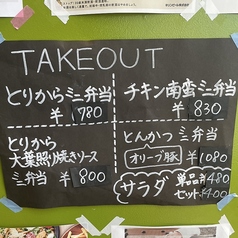 TAKEOUT
とりからミニ弁当
¥780
チキン南蛮ミニ弁当
¥830
とりから
大葉照り焼きソース
ミニ弁当 ¥800
とんかつミニ弁当
オリーブ豚 ¥1080
サラダ 単品¥480
セット¥400